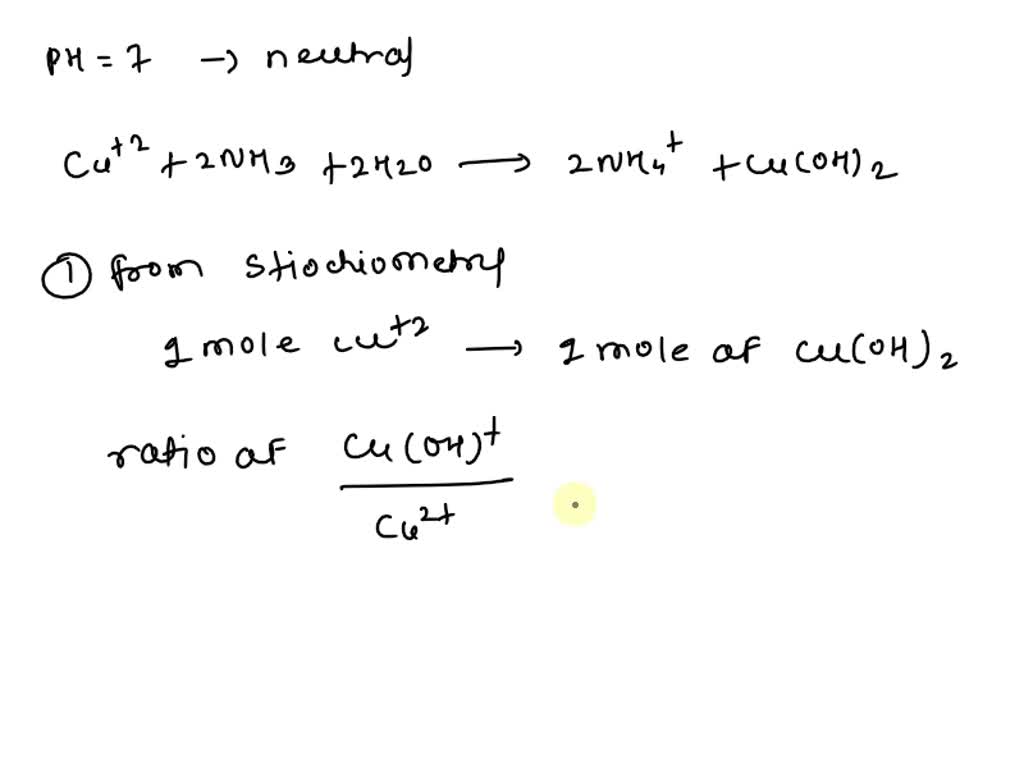 PH = 7 → neutral
Cu⁺² + 2NH3 + 2H2O ⟶ 2NH₄⁺ + Cu(OH)₂
① from stiochiometry
1 mole cu⁺² ⟶ 1 mole of cu(OH)₂
ratio of Cu(OH)⁺
Cu²⁺